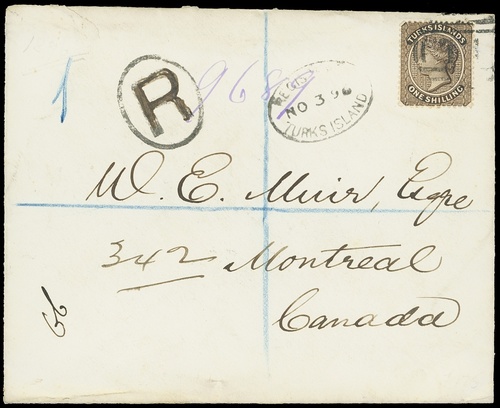 1
R
9689
REGIS
NO 3 96
TURKS ISLAND
TURKS ISLANDS
ONE SHILLING
W. E. Muir, Esqre
342 Montreal
Canada